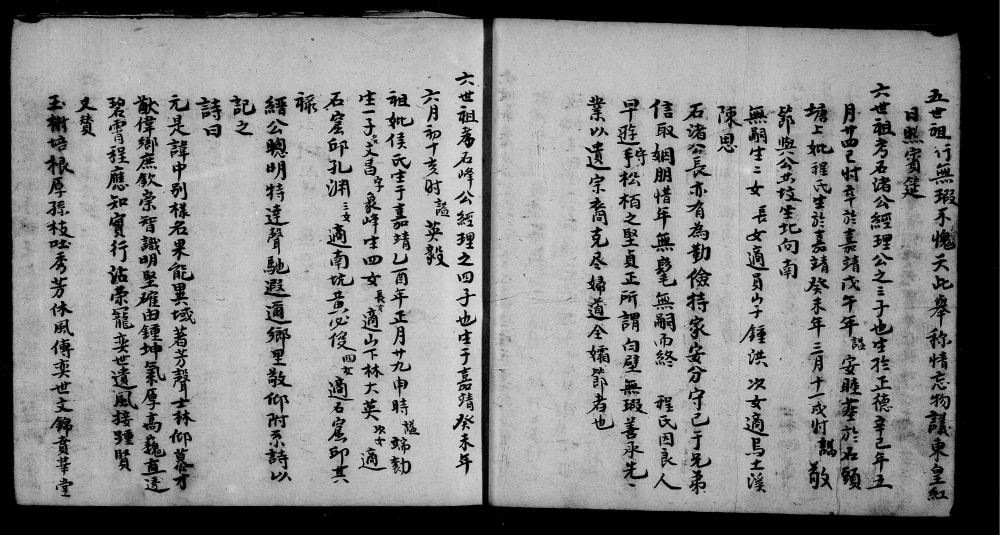 五世祖行無瑕不愧天此舉称情忘物議東皇紅
日照賓筵
六世祖考石渚公經理公之三子也生於正德辛巳年五
月廿四巳时卒於嘉靖戊午年 諡安睦葬於石頭
塘上妣程氏生於嘉靖癸未年三月十一戌时 諡敬
節與公共坟坐北向南
無嗣生二女 長女適員山子鍾洪 次女適烏土溪
陳恩
石渚公長亦有為勤儉持家安分守己于兄弟
信取姻朋惜年無髦無嗣而終 程氏因良人
早遊守松栢之堅貞正所謂白璧無瑕善承先
業以遺宗裔克尽婦道全孀節者也
六世祖考石峰公經理之四子也生于嘉靖癸未年
六月初十亥时 諡英毅
祖妣侯氏生于嘉靖乙酉年正月廿九申時 諡端勤
生一子文昌字象峰生四女 長女適山下林大英 次女適
石窟邱孔渊 三女適南坑黄必俊 四女適石窟邱其
祿
縉公聰明特達聲馳遐邇鄉里敬仰附系詩以
記之
詩曰
元是諱中别樣名果能異域著芳聲士林仰慕才
猷偉鄉庶欽崇智識明堅確由鍾坤氣厚高巍直透
碧霄程應知實行沾榮寵奕世遺風接踵賢
又赞
玉樹培根厚孫枝吐秀芳休風傳奕世文錦賁華堂